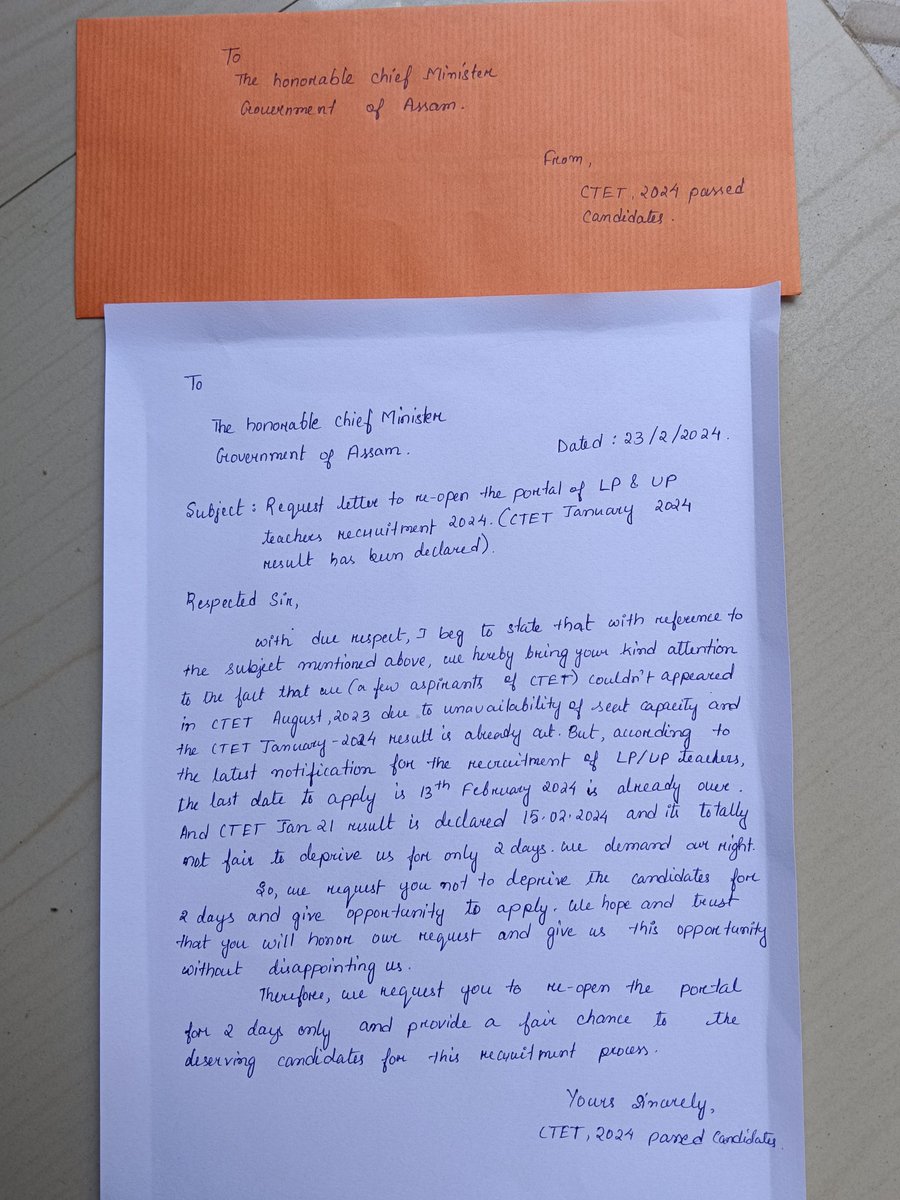 To
The honorable chief Minister
Government of Assam.
From,
CTET, 2024 passed
candidates.
To
The honorable chief Minister
Government of Assam.
Dated : 23/2/2024.
Subject : Request letter to re-open the portal of LP & UP
teachers recruitment 2024. (CTET January 2024
result has been declared).
Respected Sir,
with due respect, I beg to state that with reference to
the subject mentioned above, we hereby bring your kind attention
to the fact that we (a few aspirants of CTET) couldn't appeared
in CTET August, 2023 due to unavailability of seat capacity and
the CTET January-2024 result is already out. But, according to
the latest notification for the recruitment of LP/UP teachers,
the last date to apply is 13th February 2024 is already over.
And CTET Jan 21 result is declared 15.02.2024 and its totally
not fair to deprive us for only 2 days. we demand our right.
So, we request you not to deprive the candidates for
2 days and give opportunity to apply. We hope and trust
that you will honor our request and give us this opportunity
without disappointing us.
Therefore, we request you to re-open the portal
for 2 days only and provide a fair chance to the
deserving candidates for this recruitment process.
Yours Sincerely,
CTET, 2024 passed candidates.